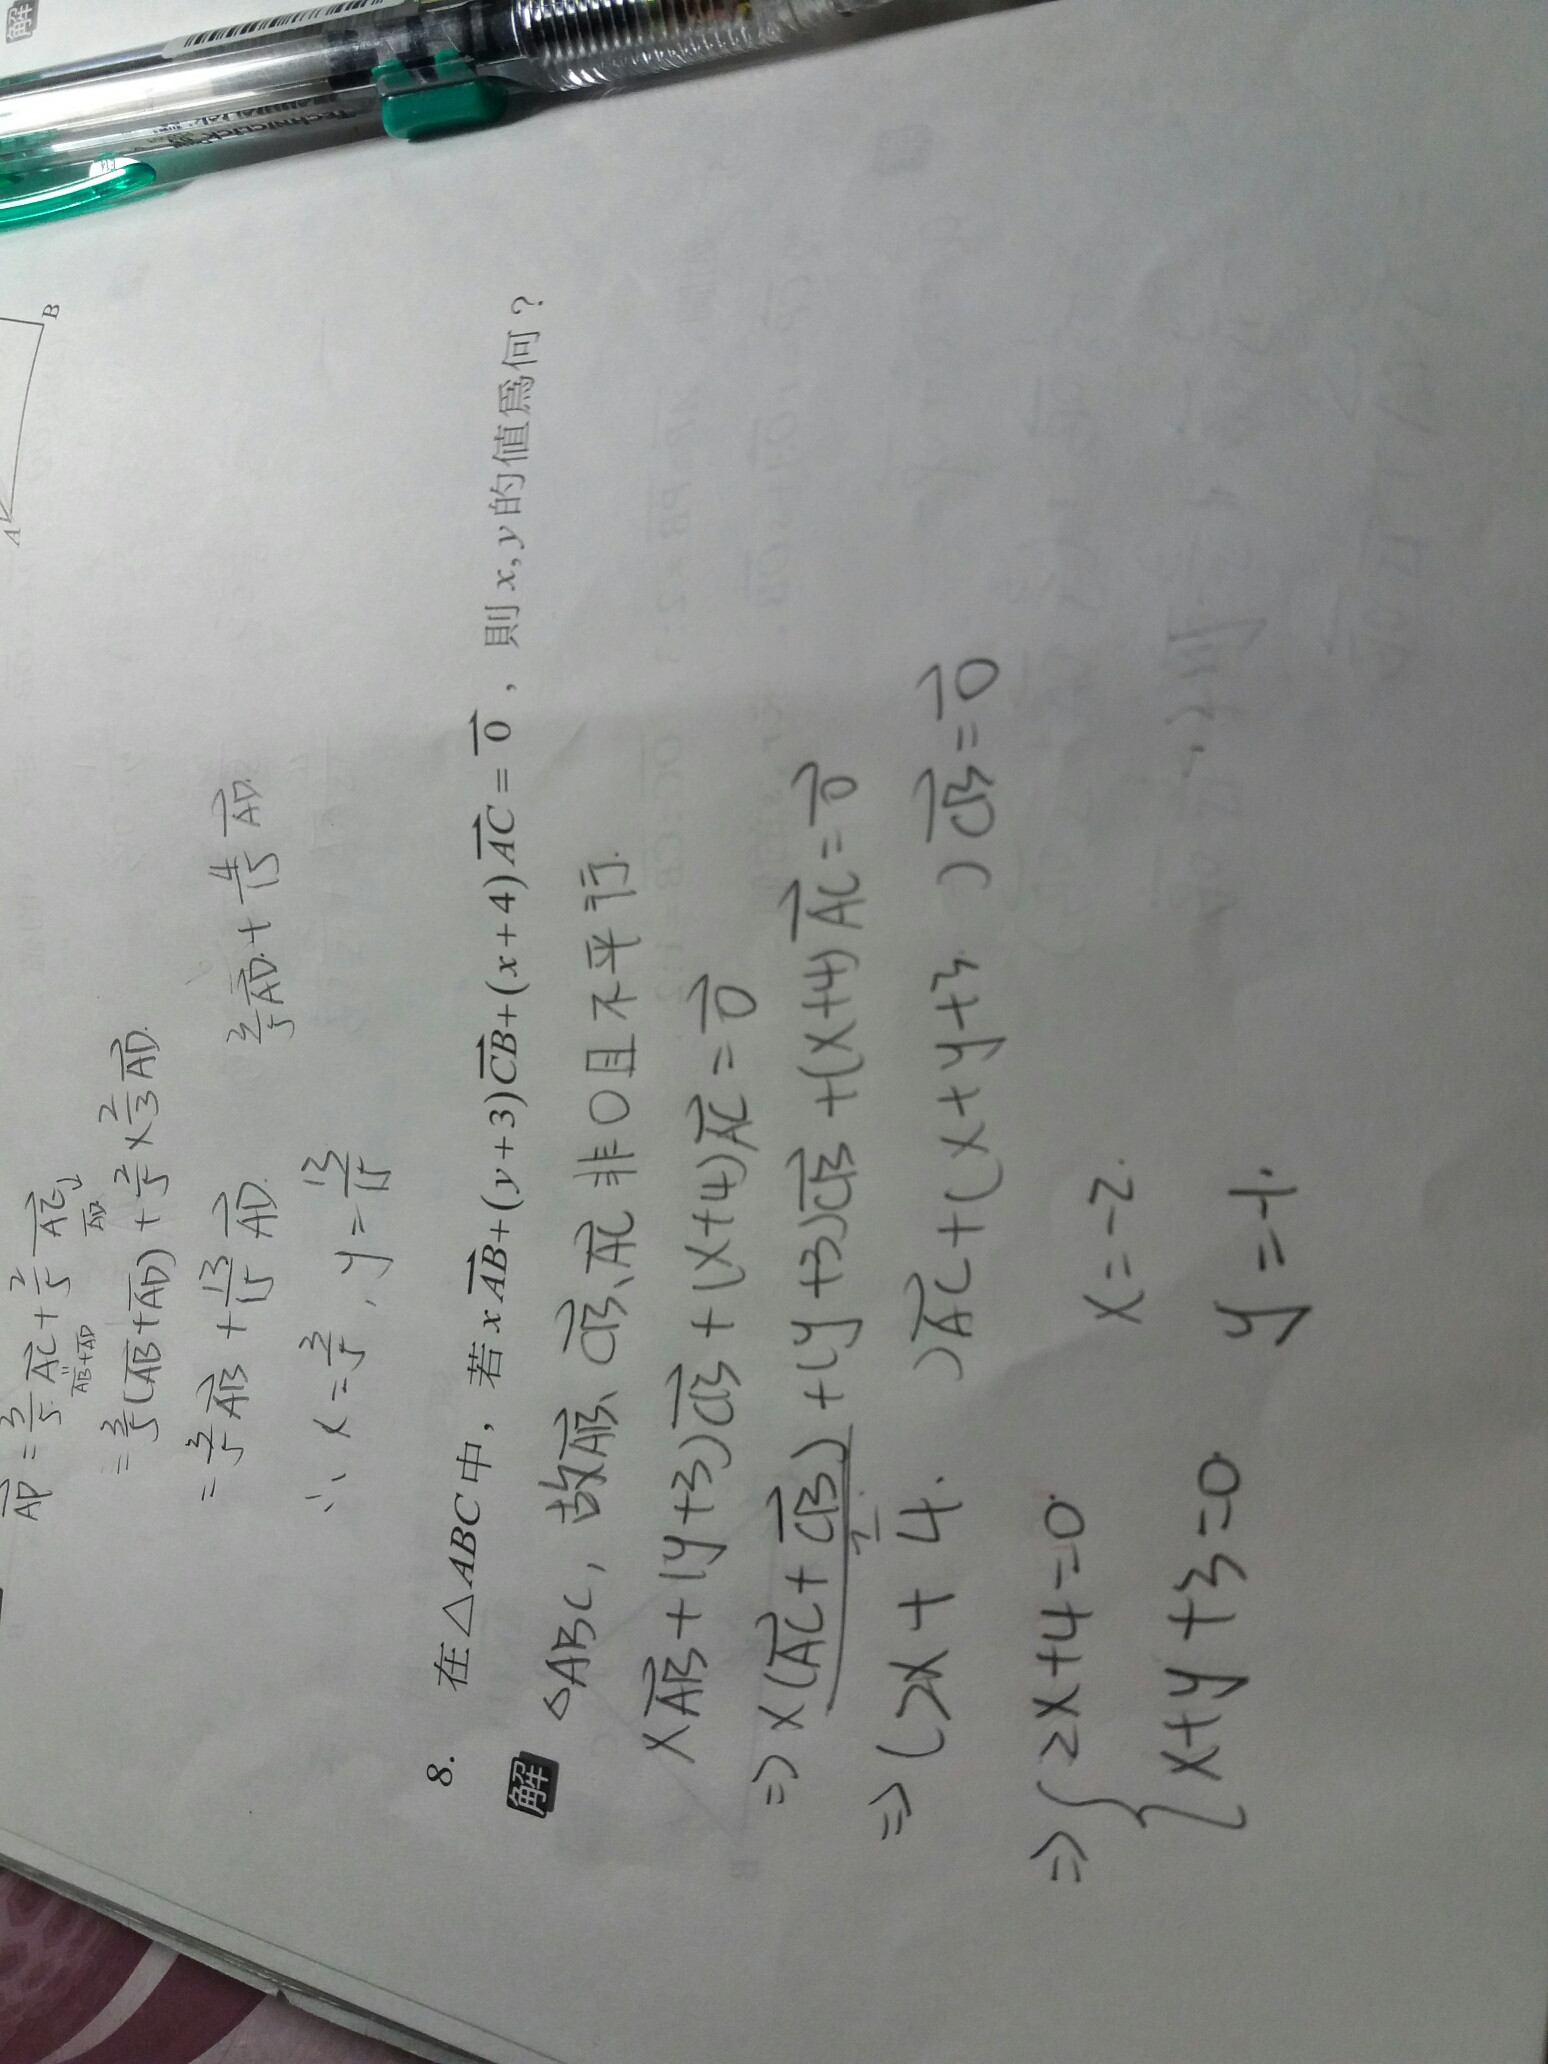 解
TECHNICLICK
A B
AD = 3/5 AC + 2/5 AE
AB+AD
= 3/5 (AB + AD) + 2/5 × 2/3 AD.
= 3/5 AB + 13/15 AD. 3/5 AD + 4/15 AD.
∴ x = 3/5 , y = 13/15
8. 在△ABC中，若 xAB+(y+3)CB+(x+4)AC=0，則x,y的值為何？
解
△ABC，故AB、CB、AC 非0且不平行.
xAB + (y+3)CB + (x+4)AC = 0
⇒ x(AC + CB) + (y+3)CB + (x+4)AC = 0
⇒ (2x + 4. )AC + (x+y+3 )CB = 0
⇒ { 2x+4=0. x=-2.
x+y+3=0 y=-1.